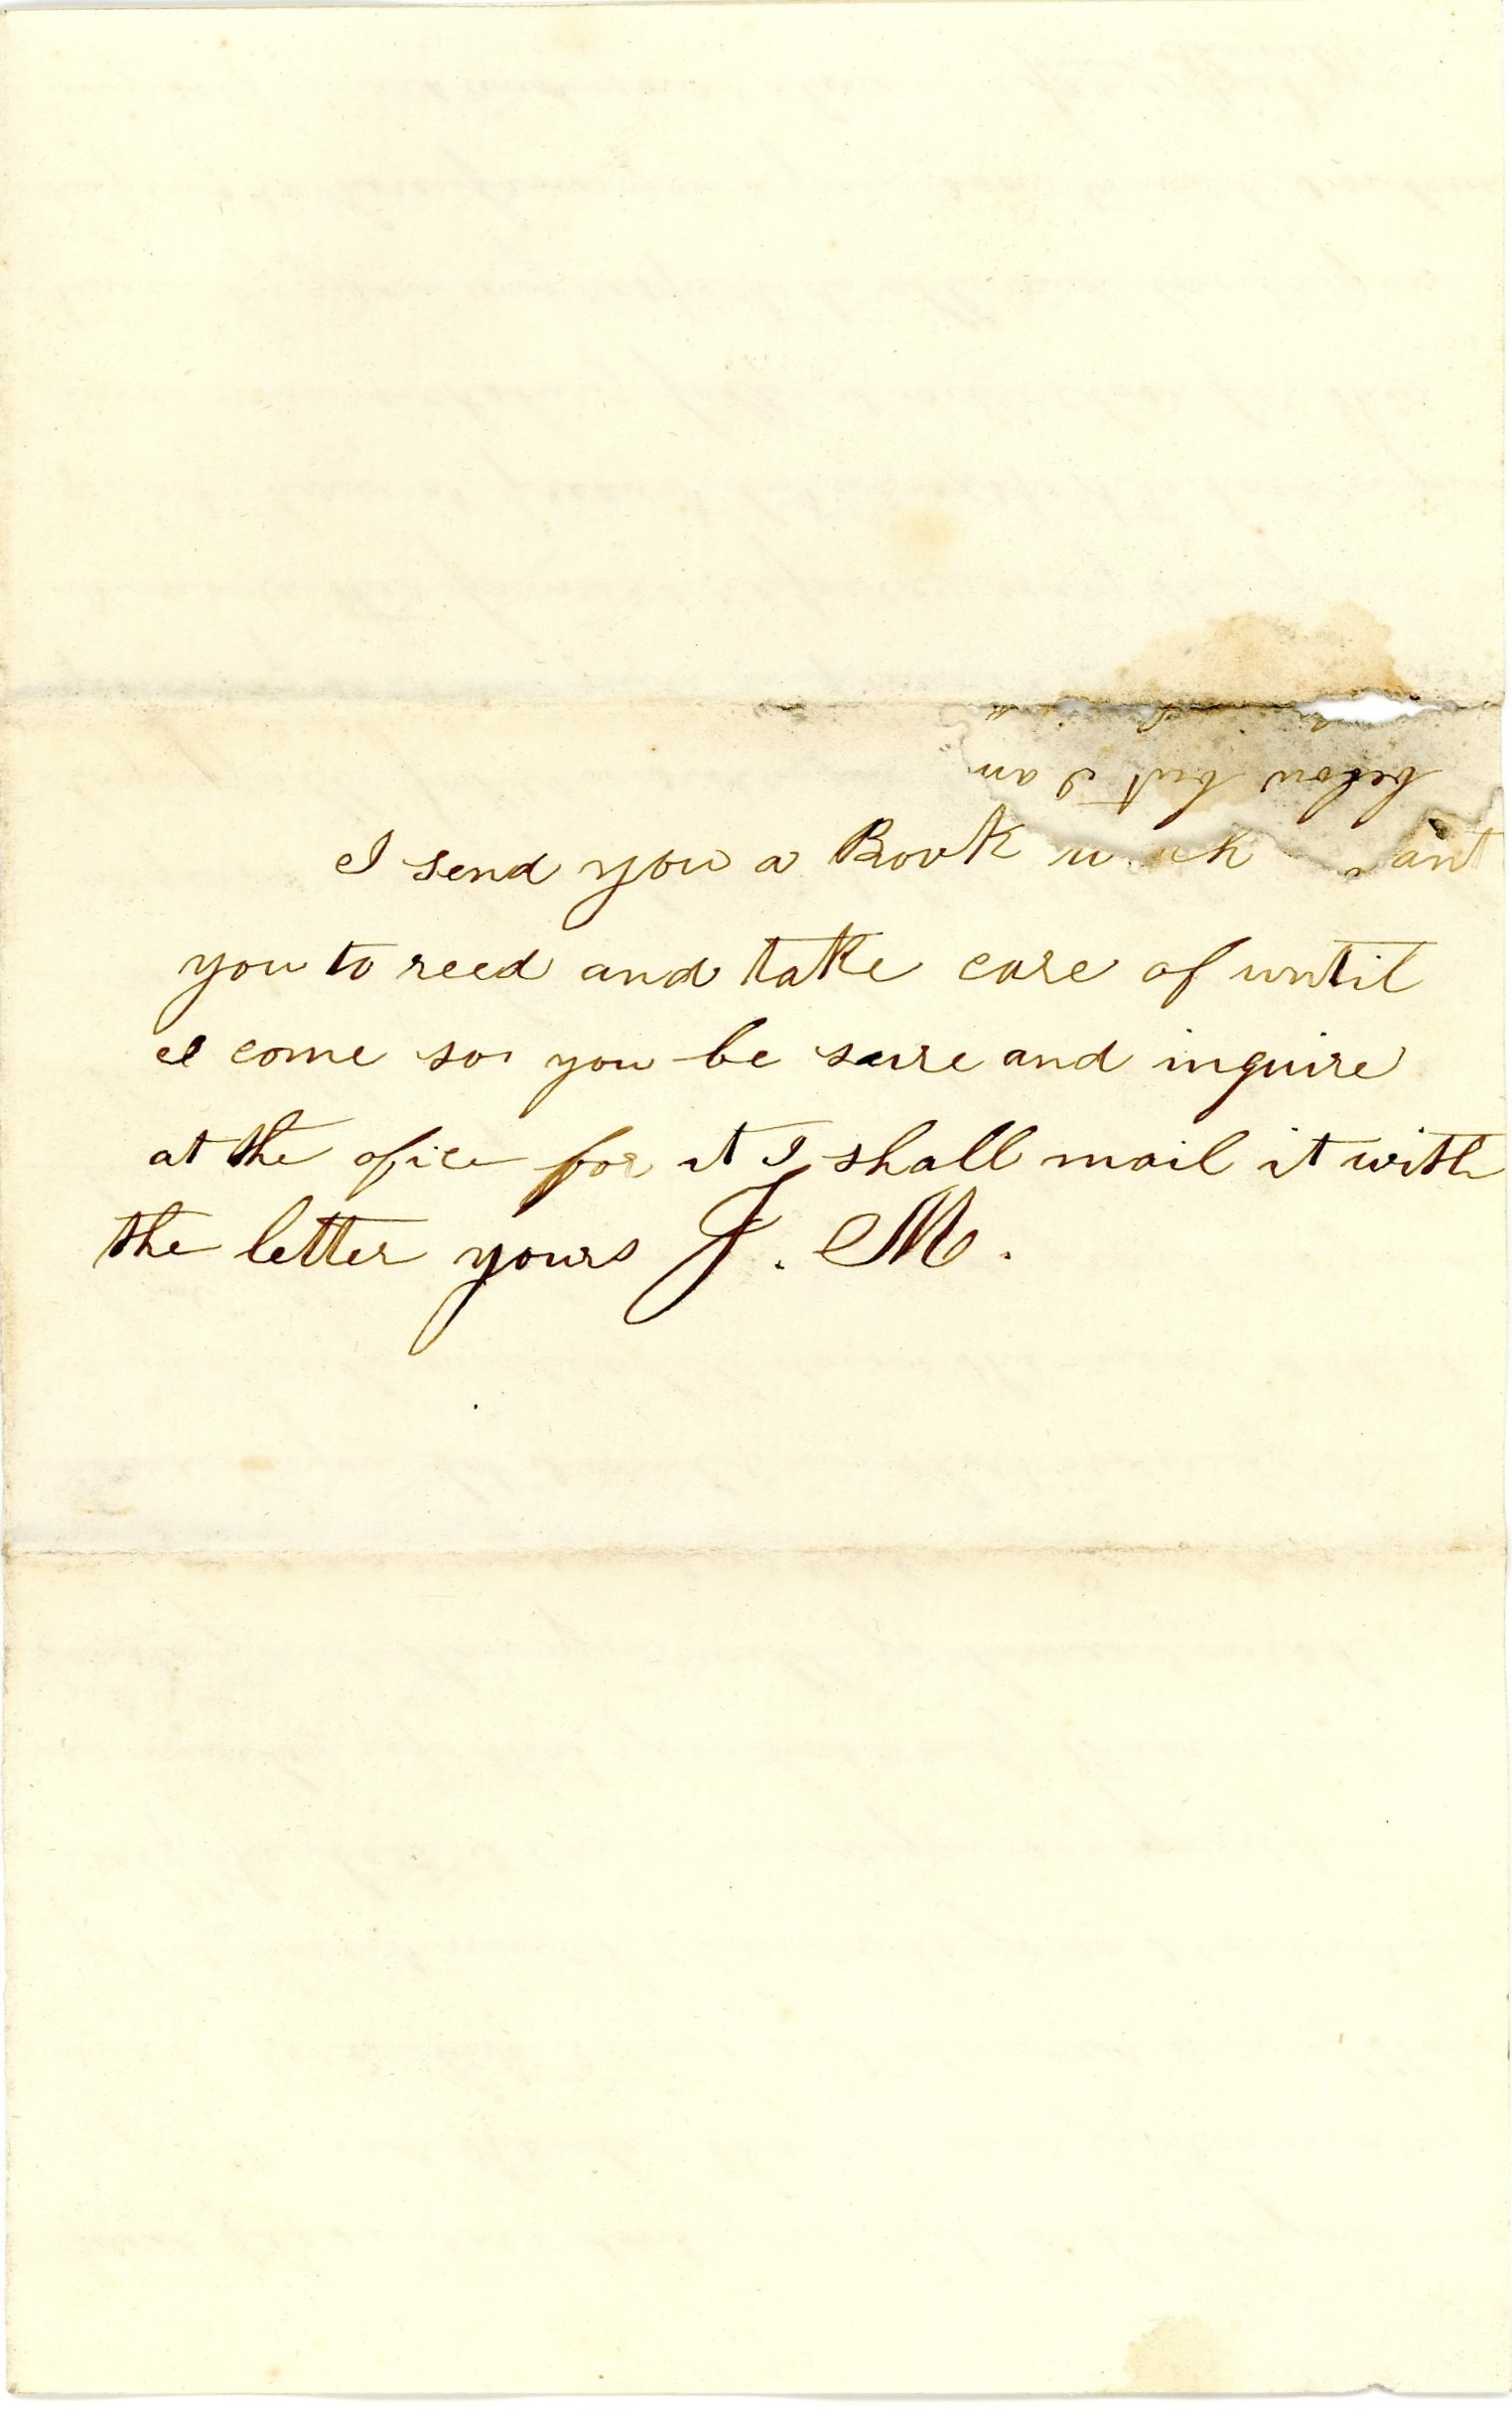 below but I am
I send you a Book want
you to reed and take care of until
I come so you be saure and inquire
at the ofice for it I shall mail it with
the letter yours J. M.